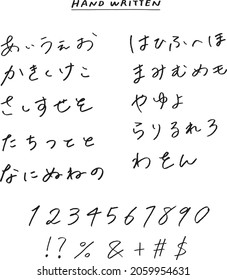 HAND WRITTEN
あいうえお
かきくけこ
さしすせそ
たちつてと
なにぬねの
はひふへほ
まみむめも
やゆよ
らりるれろ
わをん
1234567890
!? % & + # $
shutterstock.com · 2059954631